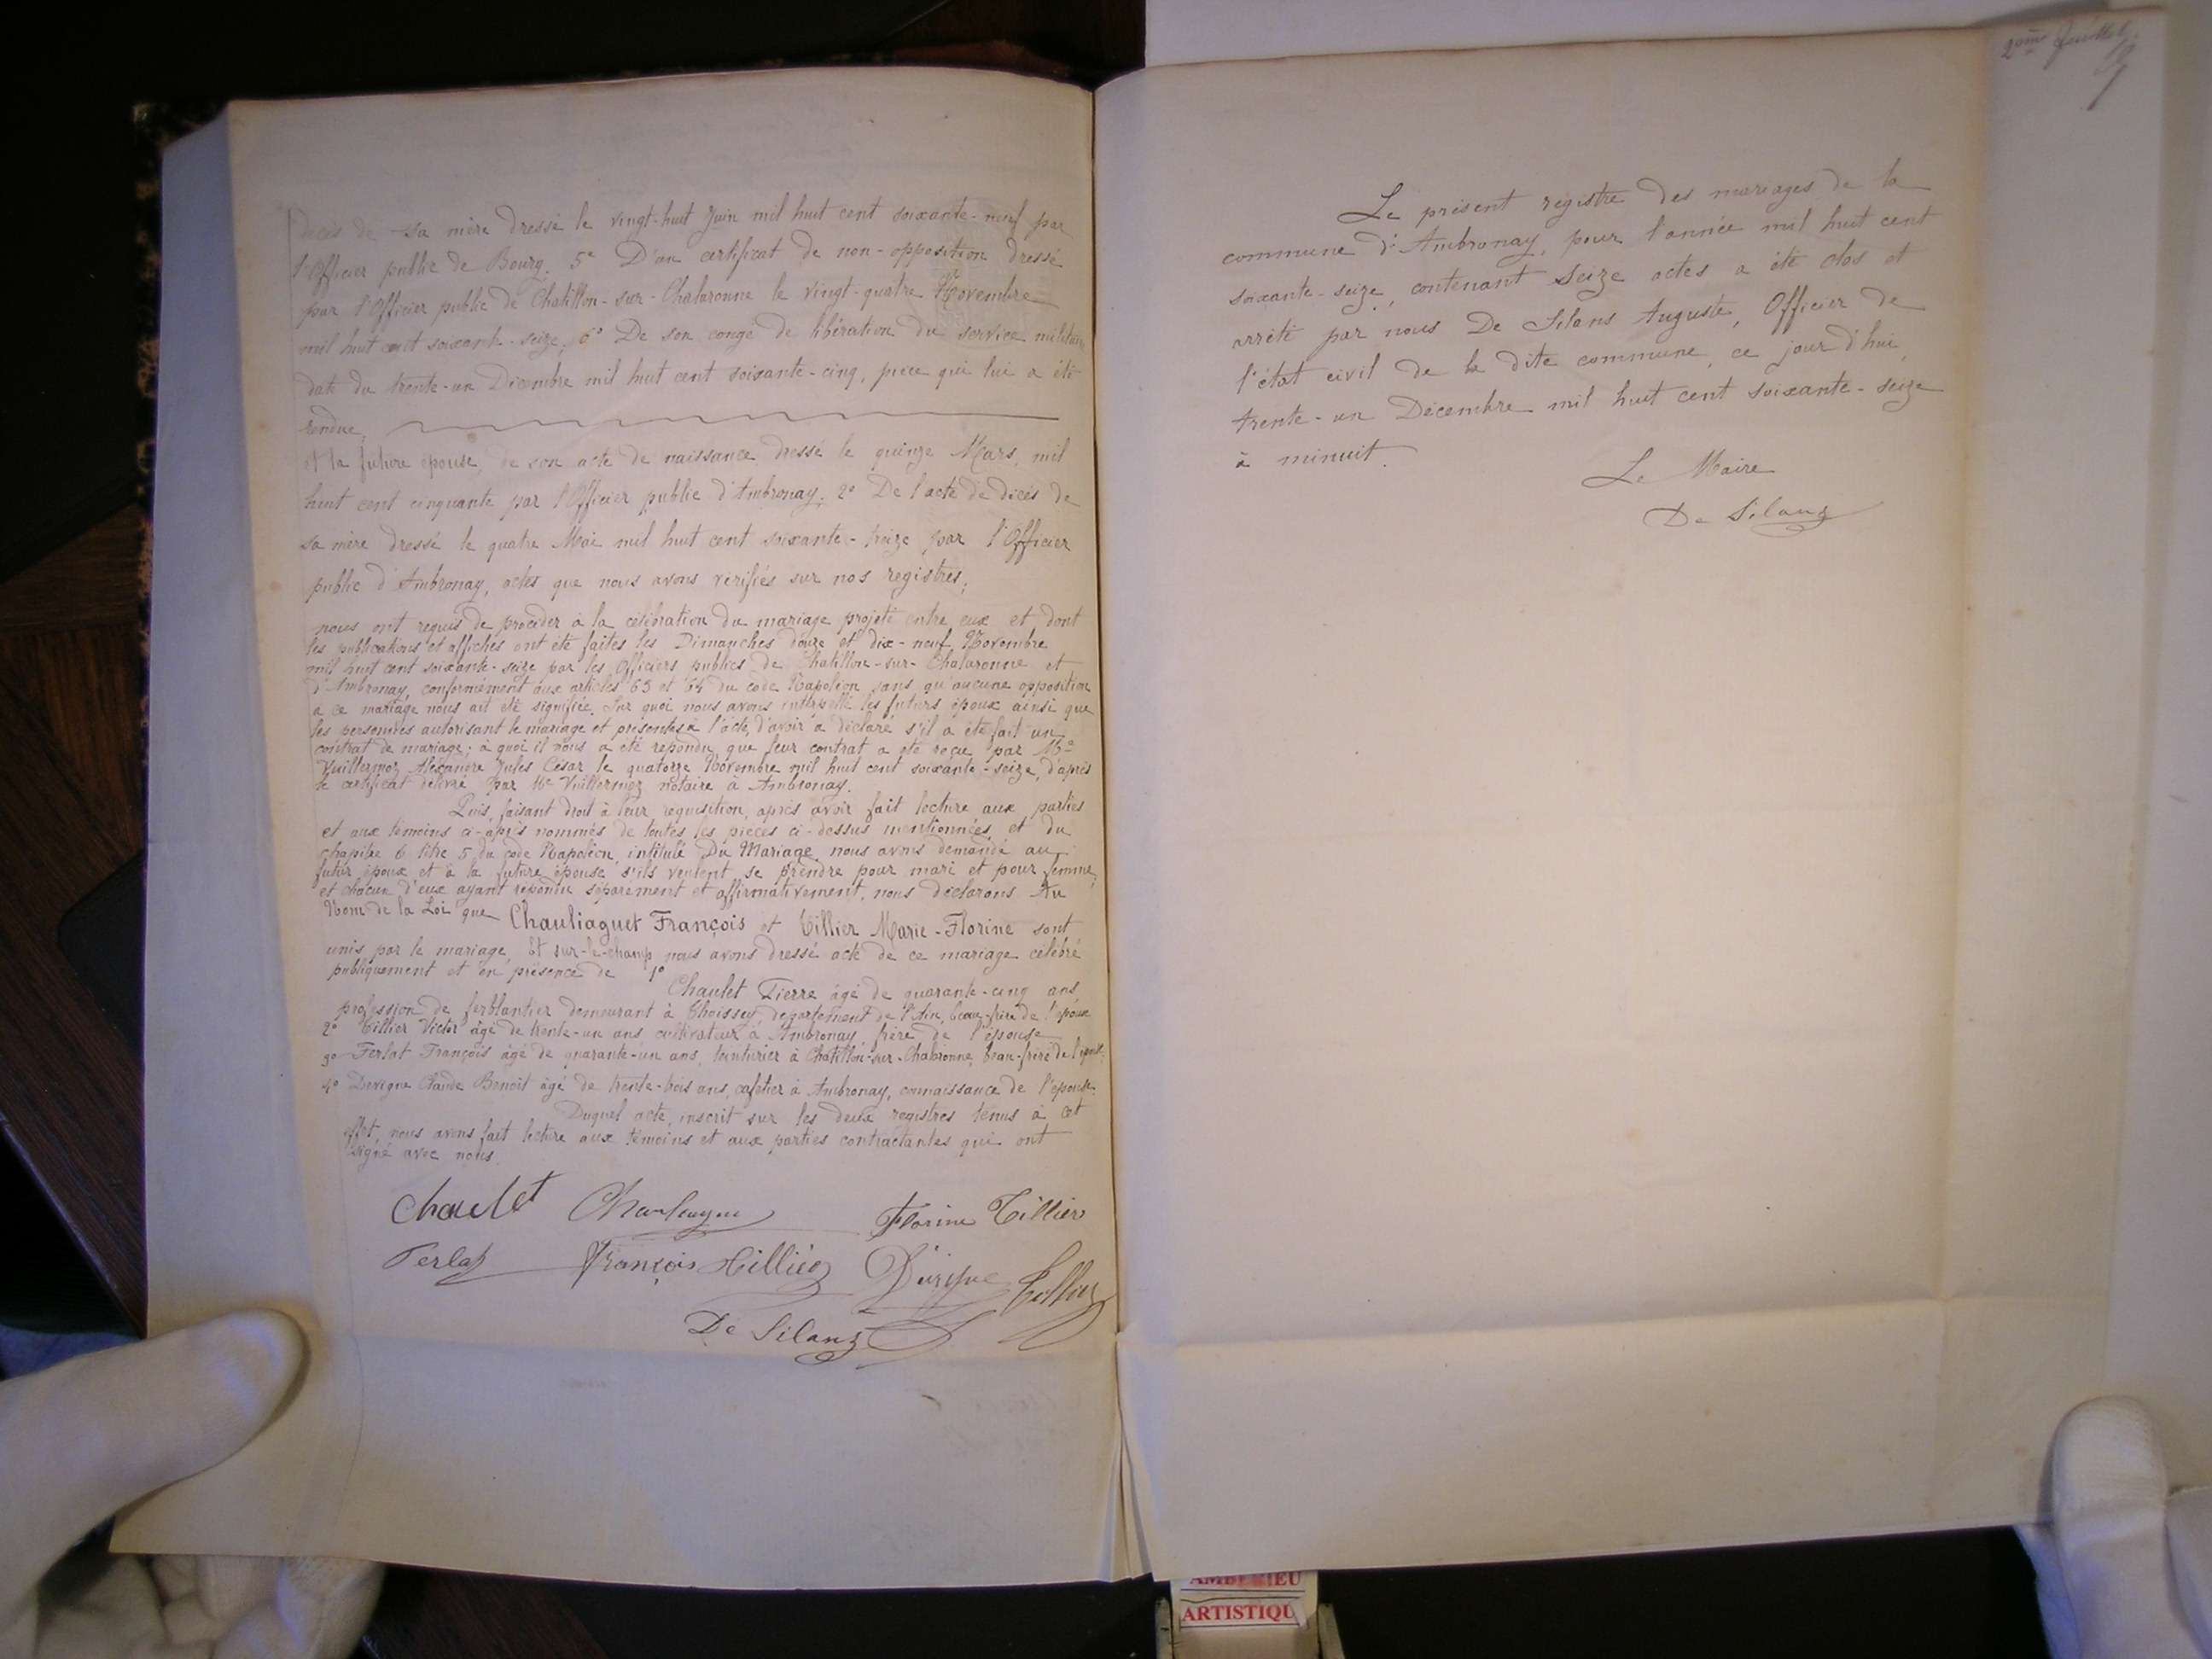 décès de sa mère dressé le vingt-huit Juin mil huit cent soixante-neuf par
l'Officier public de Bourg. 5° D'un certificat de non-opposition dressé
par l'Officier public de Chatillon-sur-Chalaronne le vingt-quatre Novembre
mil huit cent soixante-seize, 6° De son congé de libération du service militaire
daté du trente-un Décembre mil huit cent soixante-cinq, pièce qui lui a été
rendue,
et la future épouse, de son acte de naissance dressé le quinze Mars, mil
huit cent cinquante par l'Officier public d'Ambronay. 2° De l'acte de décès de
sa mère dressé le quatre Mai mil huit cent soixante-treize par l'Officier
public d'Ambronay, actes que nous avons vérifiés sur nos registres;
nous ont requis de procéder à la célébration du mariage projeté entre eux et dont
les publications et affiches ont été faites les Dimanches douze et dix-neuf Novembre
mil huit cent soixante-seize par les Officiers publics de Chatillon-sur-Chalaronne et
d'Ambronay, conformément aux articles 63 et 64 du code Napoléon sans qu'aucune opposition
a ce mariage nous ait été signifiée. Sur quoi nous avons interpellé les futurs époux ainsi que
les personnes autorisant le mariage et présentes à l'acte, d'avoir a déclaré s'il a été fait un
contrat de mariage; à quoi il nous a été répondu que leur contrat a été reçu par Me
Vuillermoz Alexandre Jules César le quatorze Novembre mil huit cent soixante-seize, d'après
le certificat délivré par Me Vuillermoz notaire à Ambronay.
Puis, faisant droit à leur réquisition, après avoir fait lecture aux parties
et aux témoins ci-après nommés de toutes les pièces ci-dessus mentionnées et du
chapitre 6 titre 5 du code Napoléon, intitulé Du Mariage, nous avons demandé au
futur époux et à la future épouse s'ils veulent se prendre pour mari et pour femme,
et chacun d'eux ayant répondu séparément et affirmativement, nous déclarons Au
Nom de la Loi que Chauliaguet François et Tillier Marie-Florine sont
unis par le mariage, Et sur-le-champ nous avons dressé acte de ce mariage célébré
publiquement et en présence de 1°
Chaulet Pierre âgé de quarante-cinq ans
profession de ferblantier demeurant à Thoissey département de l'Ain, beau-frère de l'époux
2° Tillier Victor âgé de trente-un ans cultivateur à Ambronay frère de l'épouse
3° Ferlat François âgé de quarante-un ans, teinturier à Chatillon-sur-Chalaronne, beau-frère de
4° Devigne Claude Benoit âgé de trente-trois ans, cafetier à Ambronay, connaissance de l'épouse.
Duquel acte, inscrit sur les deux registres tenus à cet
effet, nous avons fait lecture aux témoins et aux parties contractantes qui ont
signé avec nous.
Chaulet Florine Tillier
Ferlat François Tillier Tillier
De Silans
2ome feuillet
Le présent registre des mariages de la
commune d'Ambronay, pour l'année mil huit cent
soixante-seize, contenant seize actes a été clos et
arrêté par nous De Silans Auguste, Officier de
l'état civil de la dite commune, ce jour d'hui,
trente-un Décembre mil huit cent soixante-seize
à minuit.
Le Maire
De Silans
ARTISTIQU